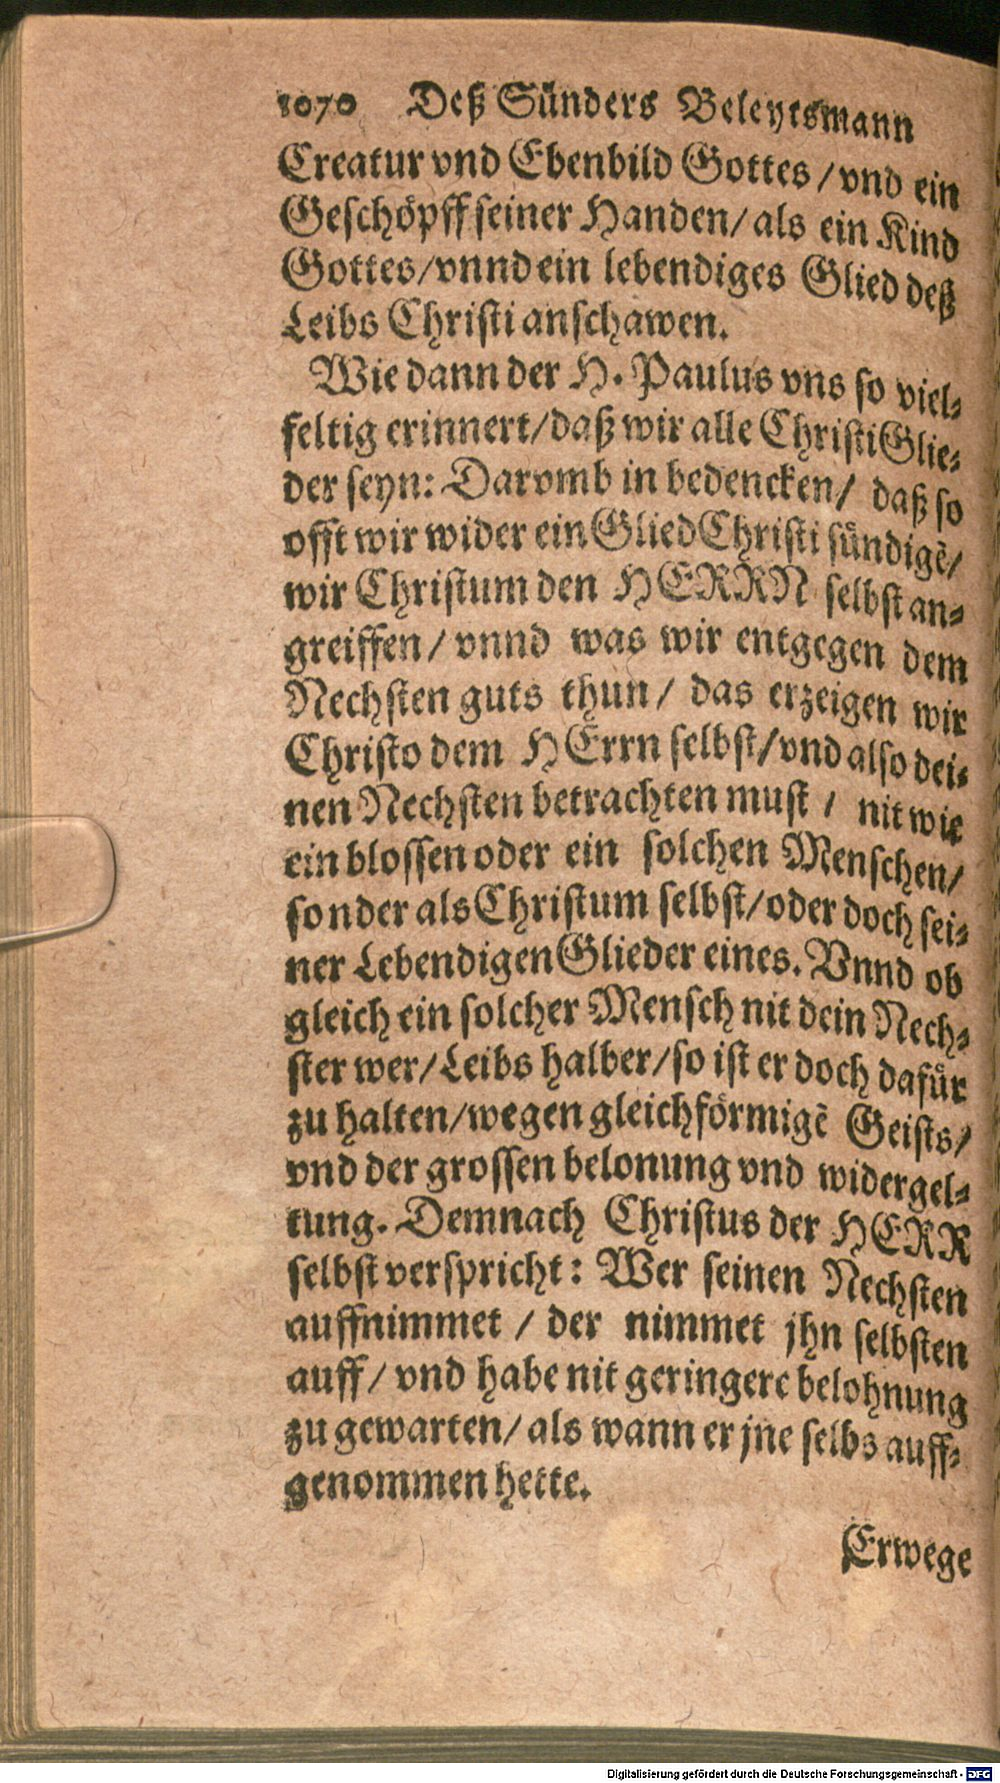 1070 Deß Sünders Beleytsmann
Creatur vnd Ebenbild Gottes / vnd ein
Geschöpff seiner Handen / als ein Kind
Gottes / vnnd ein lebendiges Glied deß
Leibs Christi anschawen.
Wie dann der H. Paulus vns so viel-
feltig erinnert / daß wir alle Christi Glie-
der seyn: Darvmb in bedencken / daß so
offt wir wider ein Glied Christi sündigẽ /
wir Christum den HERRN selbst an-
greiffen / vnnd was wir entgegen dem
Nechsten guts thun / das erzeigen wir
Christo dem HErrn selbst / vnd also dei-
nen Nechsten betrachten must / nit wie
ein blossen oder ein solchen Menschen /
sonder als Christum selbst / oder doch sei-
ner Lebendigen Glieder eines. Vnnd ob
gleich ein solcher Mensch nit dein Nech-
ster wer / Leibs halber / so ist er doch dafür
zu halten / wegen gleichförmigẽ Geists /
vnd der grossen belonung vnd widergel-
tung. Demnach Christus der HERR
selbst verspricht: Wer seinen Nechsten
auffnimmet / der nimmet jhn selbsten
auff / vnd habe nit geringere belohnung
zu gewarten / als wann er jne selbs auff-
genommen hette.
Erwege
Digitalisierung gefördert durch die Deutsche Forschungsgemeinschaft - DFG